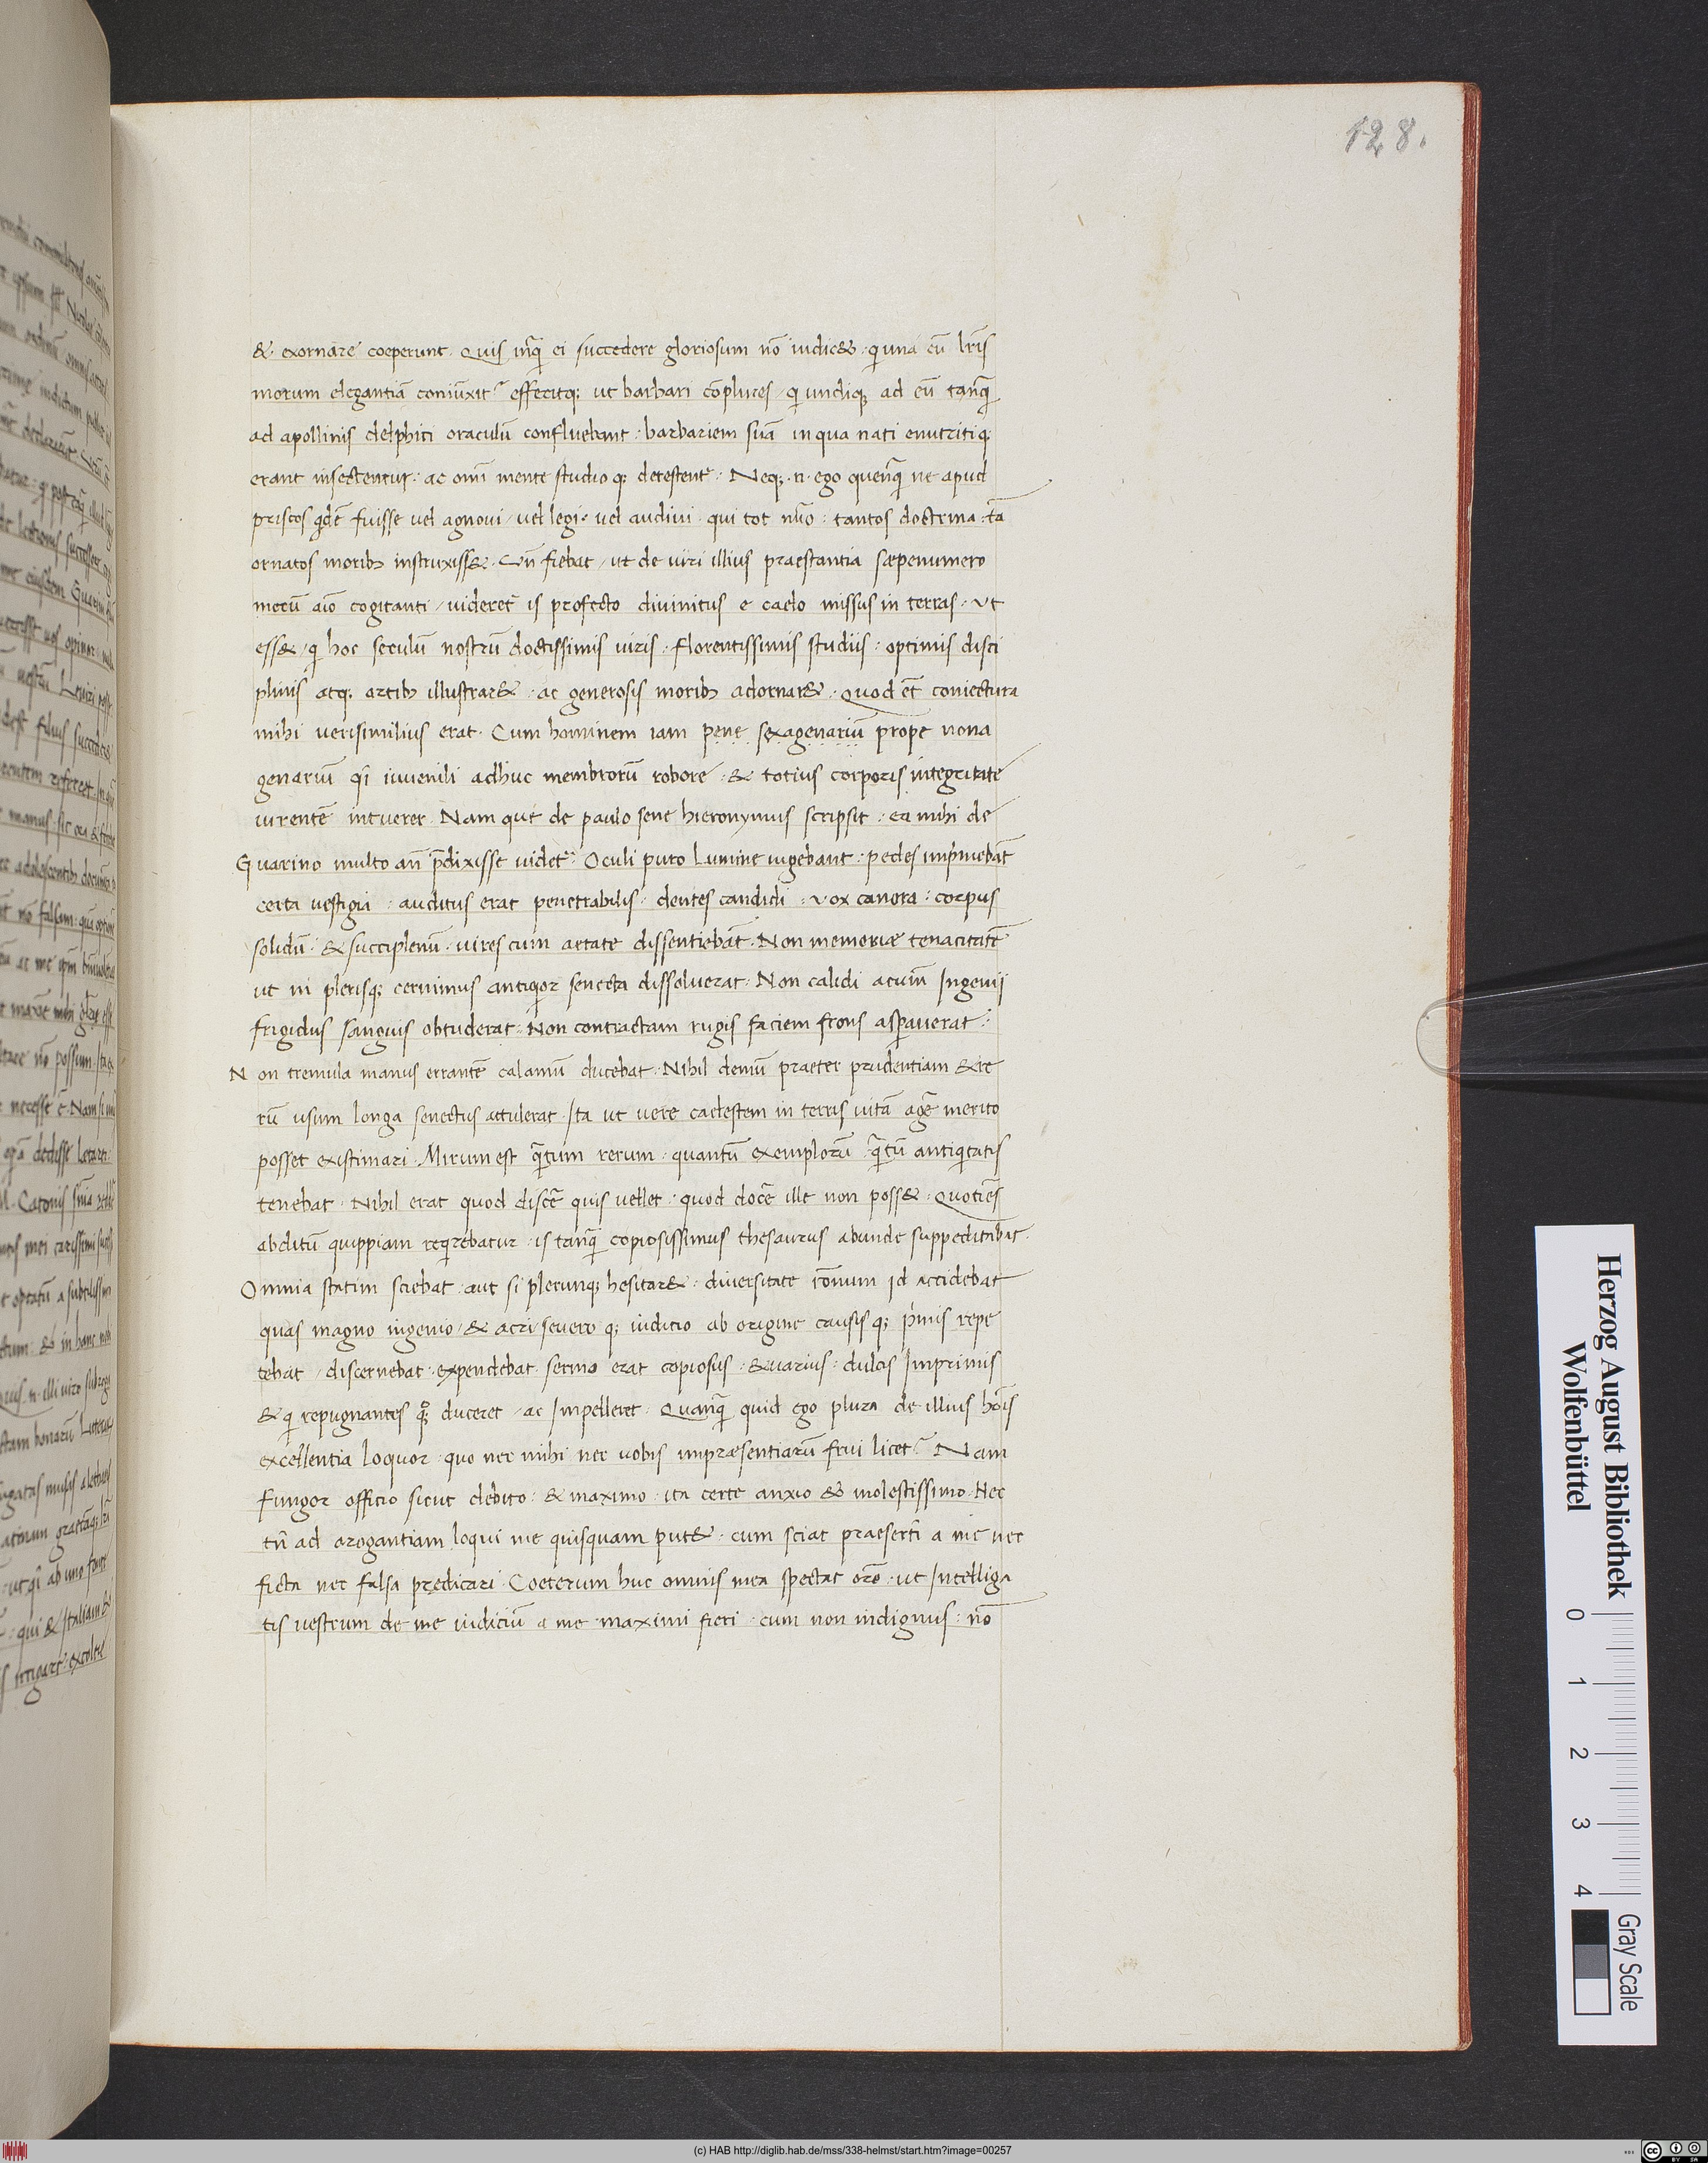 128.
& exornare coeperunt. Quis inq̃ ei succedere gloriosum nō iudic&, q̇ una cū lr̃is
morum elegantiā coniūxit? effecitq; ut barbari cōplures, q̇ undiq; ad eū tanq̃
ad apollinis delphici oraculū confluebant: barbariem suā in qua nati enutritiq;
erant insectentur: ac om̃i mente studio q; detestent᷑. Neq; .n. ego quenq̃ ne apud
priscos q̇dē fuisse vel agnoui, vel legi, vel audiui qui tot nũo: tantos doctrina: tā
ornatos morib; instruxiss&. Un̄ fiebat, ut de uiri illius praestantia sæpenumero
mecū aīo cogitanti, uideret᷑ is profecto diuinitus e caelo missus in terras, ut
ess&, q̇ hoc seculū nostrū doctissimis uiris: florentissimis studiis: optimis disci
plinis atq; artib; illustrar&, ac generosis morib; adornar&. Quod et̄ coniectura
mihi uerisimilius erat. Cum hominem iam pene sexagenariū prope nona
genariū q̄i iuuenili adhuc membrorū robore, & totius corporis integritate
uirentē intuerer. Nam que de paulo sene hieronymus scripsit: ea mihi de
Guarino multo an̄ p̄dixisse uidet᷑. Oculi puro lumine uigebant: pedes imp̃mebāt
certa uestigia: auditus erat penetrabilis: dentes candidi: vox canora: corpus
solidū: & succiplenū: uires cum aetate dissentiebāt. Non memoriæ tenacitatē
ut in plerisq; cernimus antiq̇or senecta dissoluerat. Non calidi acum̄ Ingenij
frigidus sanguis obtuderat. Non contractam rugis faciem frons asperauerat.
Non tremula manus errantē calamū ducebat. Nihil demū praeter prudentiam & re
rū usum longa senectus attulerat. Ita ut uere caelestem in terris uitā agē merito
posset existimari. Mirum est q̃tum rerum: quantū exemplorū: q̃tū antiq̇tatis
tenebat. Nihil erat quod discē quis uellet: quod docē ille non poss&. Quotiēs
abditū quippiam req̇rebatur is tanq̃ copiosissimus thesaurus abunde suppeditabat.
Omnia statim sciebat. aut si plerunq; hesitar&: diuersitate rōnum id accidebat
quas magno ingenio, & acri, seuero q; iudicio ab origine causis q; p̃mis repe
tebat, discernebat: expendebat. sermo erat copiosus: & uarius: dulcis Imprimis
& q̇ repugnantes q̊; duceret, ac Impelleret. Quanq̃ quid ego plura de illius hōis
excellentia loquor quo nec mihi nec uobis impræsentiarū frui licet? Nam
fungor officio sicut debito: & maximo: ita certe anxio & molestissimo. Nec
tn̄ ad arogantiam loqui me quisquam put&: cum sciat praesertī a me nec
ficta nec falsa prędicari. Coeterum huc omnis mea spectat orō: ut Intelliga
tis uestrum de me iudiciū a me maximi fieri: cum non indignus: nō
Herzog August Bibliothek
Wolfenbüttel
0 1 2 3 4
Gray Scale
(c) HAB http://diglib.hab.de/mss/338-helmst/start.htm?image=00257